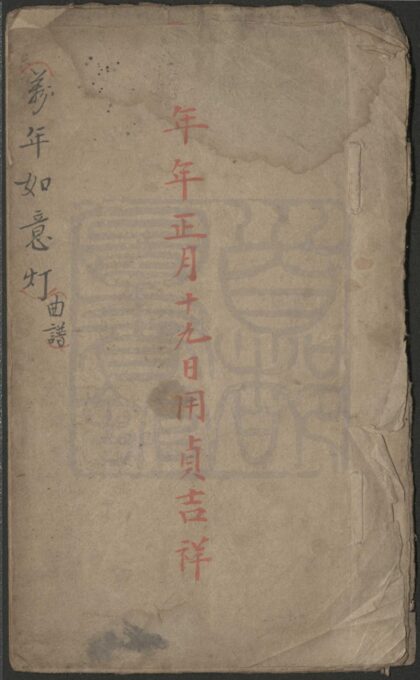 年年正月十九日用貞吉祥
萬年如意灯
曲譜